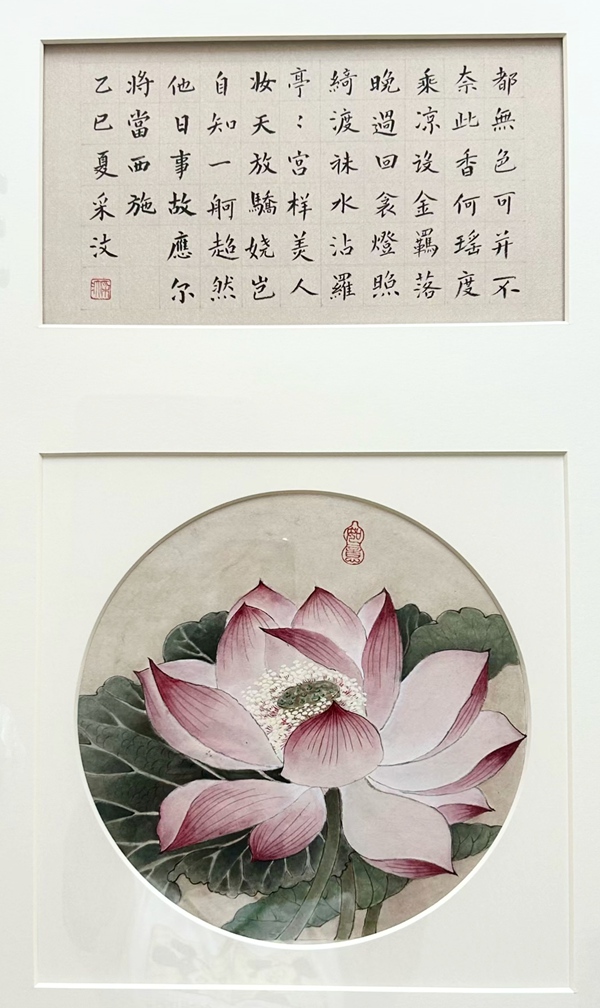 都無色可并不
奈此香何瑤度
乘凉设金羈落
晚過回衾燈照
綺渡袜水沾羅
亭〻宮样美人
妆天放驕娆岂
自知一舸超然
他日事故應尔
將當西施
乙巳夏采汶
如意